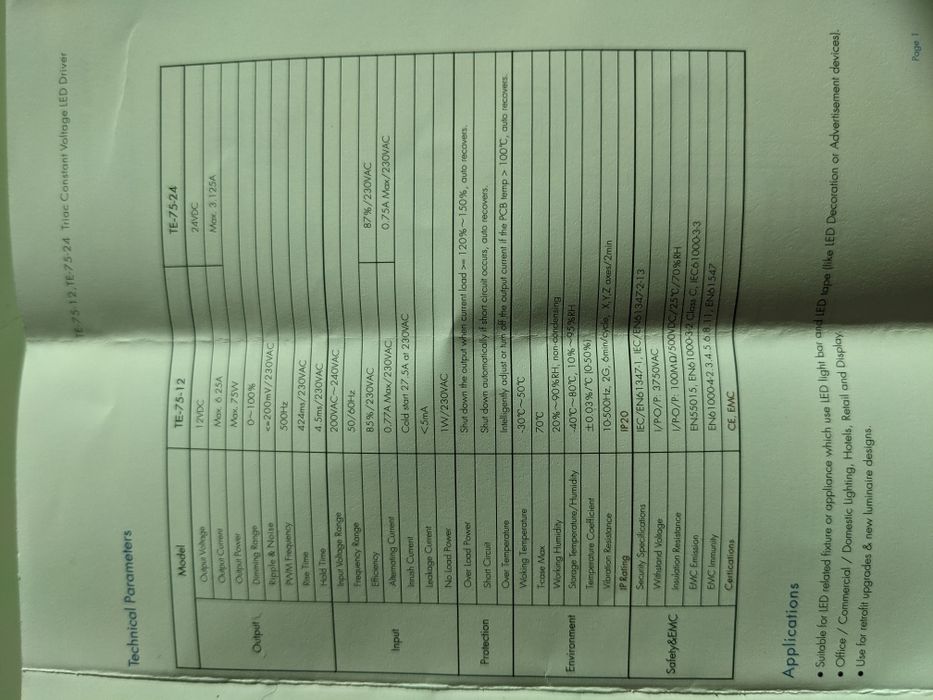 TE-75-12,TE-75-24 Triac Constant Voltage LED Driver
Technical Parameters
Model TE-75-12 TE-75-24
Output
Output Voltage 12VDC 24VDC
Output Current Max. 6.25A Max. 3.125A
Output Power Max. 75W
Dimming Range 0~100%
Ripple & Noise <=200mV/230VAC
PWM Frequency 500Hz
Rise Time 424ms/230VAC
Hold Time 4.5ms/230VAC
Input
Input Voltage Range 200VAC~240VAC
Frequency Range 50/60Hz
Efficiency 85%/230VAC 87%/230VAC
Alternating Current 0.77A Max/230VAC 0.75A Max/230VAC
Inrush Current Cold start 27.5A at 230VAC
Leakage Current <5mA
No Load Power 1W/230VAC
Protection
Over Load Power Shut down the output when current load >= 120%~150%, auto recovers.
Short Circuit Shut down automatically if short circuit occurs, auto recovers.
Over Temperature Intelligently adjust or turn off the output current if the PCB temp > 100℃, auto recovers.
Environment
Working Temperature -30℃~50℃
Tcase Max 70℃
Working Humidity 20%~90%RH, non-condensing
Storage Temperature/Humidity -40℃~80℃, 10%~95%RH
Temperature Coefficient ±0.03%/℃ (0-50%)
Vibration Resistance 10-500Hz, 2G, 6min/cycle, X,Y,Z axes/2min
IP Rating IP20
Safety&EMC
Security Specifications IEC/EN61347-1, IEC/EN61347-2-13
Withstand Voltage I/P-O/P: 3750VAC
Insulation Resistance I/P-O/P: 100MΩ/500VDC/25℃/70%RH
EMC Emission EN55015, EN61000-3-2 Class C, IEC61000-3-3
EMC Immunity EN61000-4-2,3,4,5,6,8,11, EN61547
Certications CE,EMC
Applications
• Suitable for LED related fixture or appliance which use LED light bar and LED tape (like LED Decoration or Advertisement devices).
• Office / Commercial / Domestic Lighting, Hotels, Retail and Display.
• Use for retrofit upgrades & new luminaire designs.
Page 1